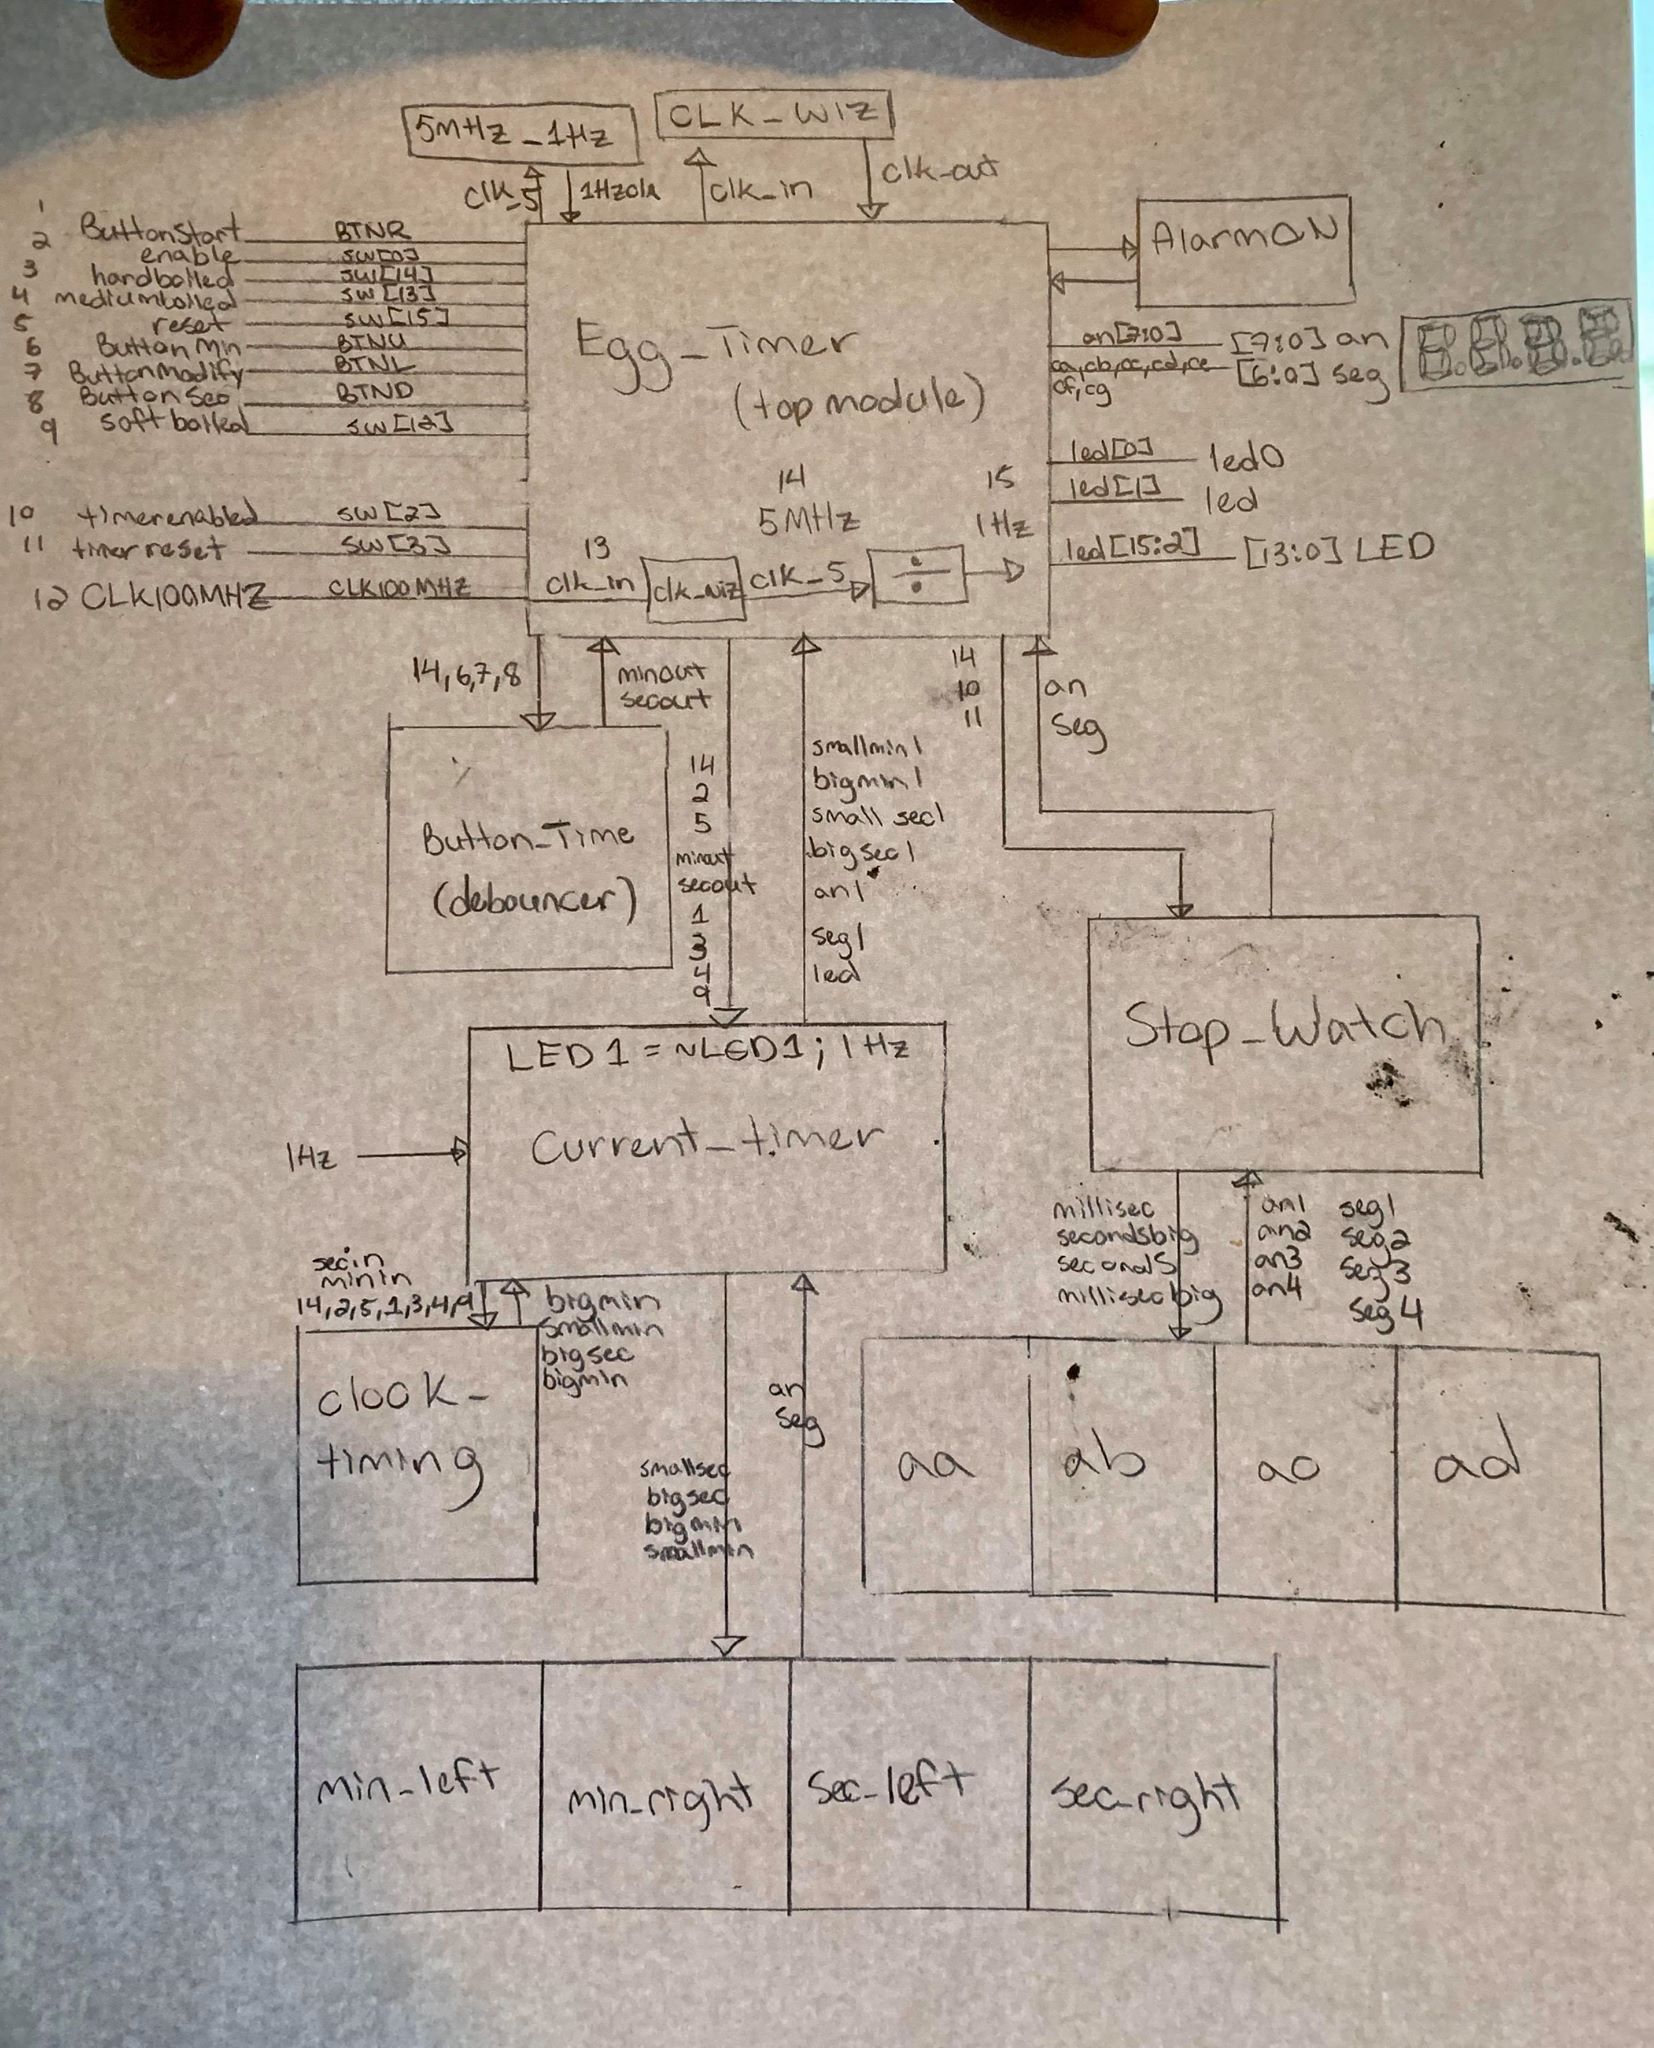 5MHz_1Hz
CLK_WIZ
clk_5
1Hzclk
clk_in
clk_out
1
2 ButtonStart BTNR
enable SW[0]
3 hardboiled SW[14]
4 mediumboiled SW[13]
5 reset SW[15]
6 Button Min BTNU
7 ButtonModify BTNL
8 Button Sec BTND
9 soft boiled SW[12]
10 timerenabled SW[2]
11 timer reset SW[3]
12 CLK100MHZ CLK100MHZ
Egg_Timer
(top module)
13
clk_in
clk_wiz
14
5MHz
clk_5
15
1Hz
AlarmON
an[7:0] [7:0] an
ca,cb,cc,cd,ce [6:0] seg
cf,cg
8.8.8.8
led[0] led0
led[1] led
led[15:2] [13:0] LED
14,6,7,8
minout
secout
Button_Time
(debouncer)
14
2
5
minout
secout
1
3
4
9
smallmin1
bigmin1
small sec1
bigsec1
an1
seg1
led
14
10
11
an
seg
Stop_Watch
LED1 = ~LED1; 1Hz
Current_timer
1Hz
secin
minin
14,2,5,1,3,4,9
bigmin
smallmin
bigsec
bigmin
clock_
timing
smallsec
bigsec
bigmin
smallmin
an
seg
millisec
secondsbig
seconds
millisecbig
an1 seg1
an2 seg2
an3 seg3
an4 seg4
aa ab ac ad
min_left min_right sec_left sec_right